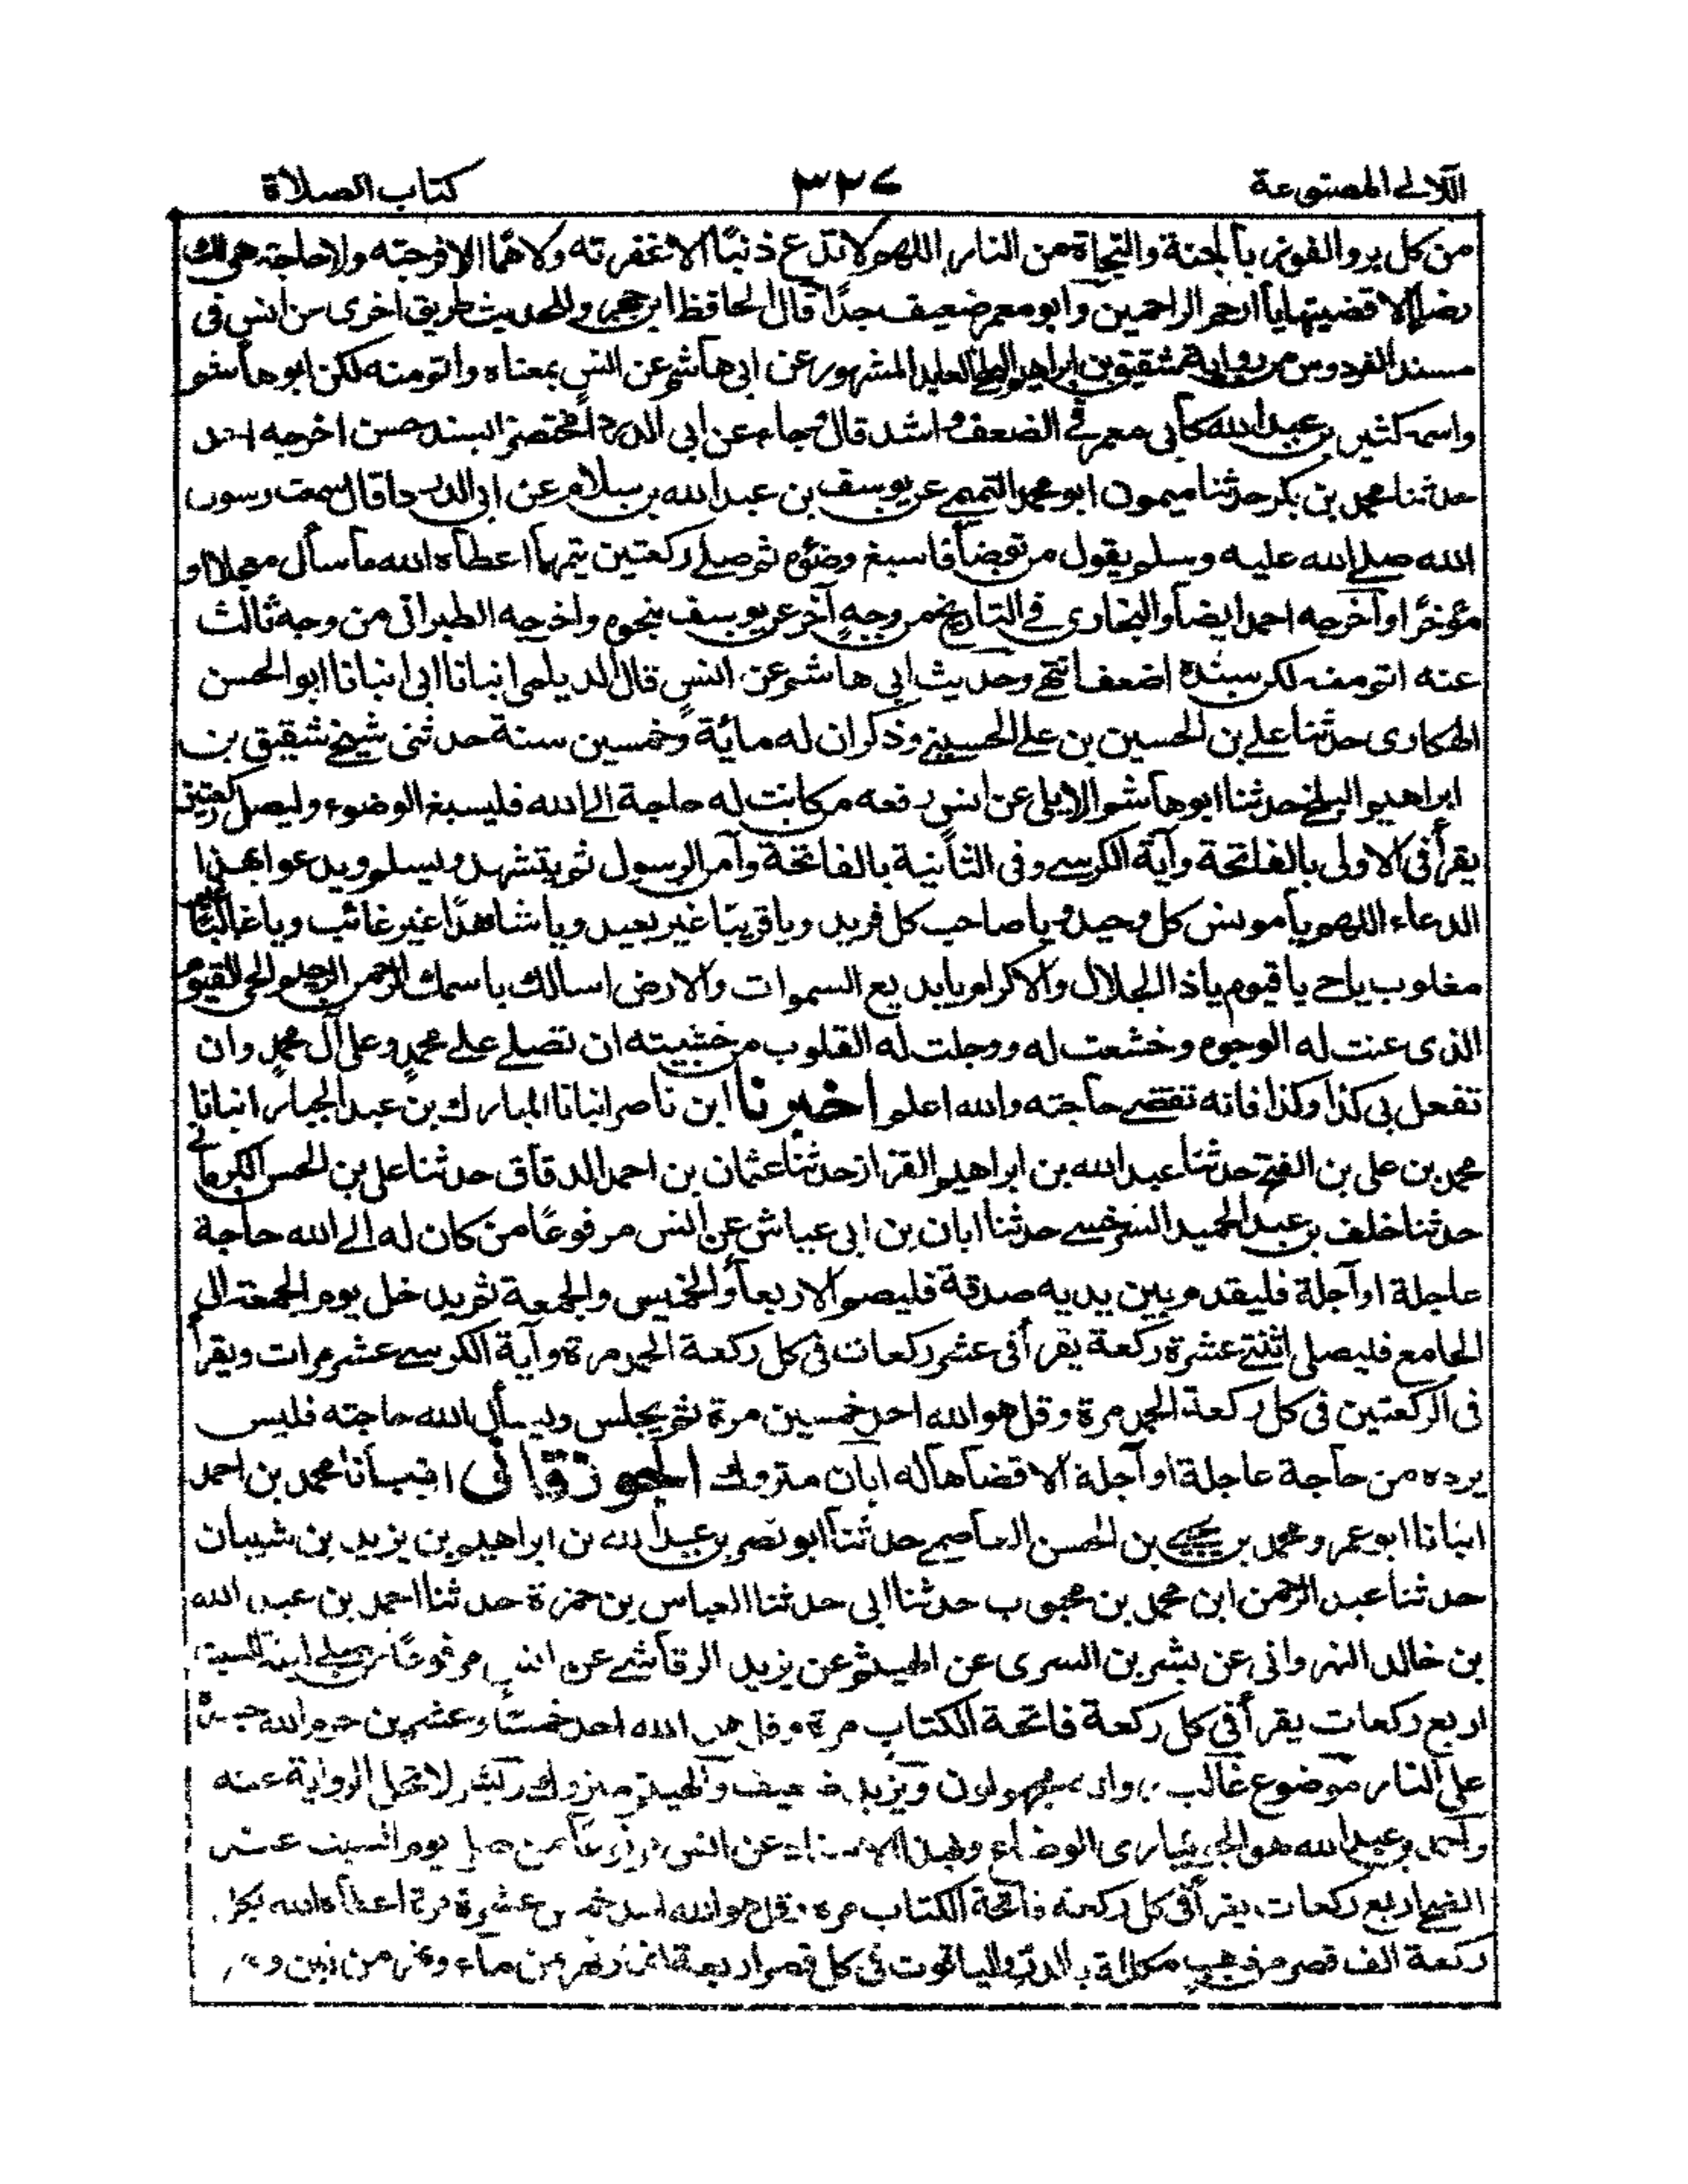 اللآلے المصنوعة ٣٢٤ كتاب الصلاة
من كل بر والفوز بالجنة والنجاة من النار اللهم لا تدع ذنبًا الا غفرته ولا همًا الا فرجته ولا حاجة هى لك
رضا الا قضيتها يا ارحم الراحمين وابو معمر ضعيف جدًا قال الحافظ ابن حجر وللحديث طريق اخرى عن انس فى
مسند الفردوس من رواية شقيق بن ابراهيم البلخى العابد المشهور عن ابى هاشم عن انس بمعناه واتم منه لكن ابو هاشم
واسمه كثير بن عبد الله كأبى معمر فى الضعف واشد قال وجاء عن ابى الدرداء مختصرًا بسند حسن اخرجه احمد
حدثنا محمد بن بكر حدثنا ميمون ابو محمد التميمى عن يوسف بن عبد الله بن سلام عن ابى الدرداء قال سمعت رسول
الله صلے الله عليه وسلم يقول من توضأ فاسبغ وضوءه ثم صلے ركعتين يتمهما اعطاه الله ما سأل معجلا او
مؤخرًا واخرجه احمد ايضا والبخارى فى التاريخ من وجهٍ آخر عن يوسف بنحوه واخرجه الطبرانى من وجه ثالث
عنه اتم منه لكن سنده اضعف انتهى وحديث ابى هاشم عن انس قال الديلمى انبانا ابى انبانا ابو الحسن
الهكارى حدثنا على بن الحسين بن على الحسينى وذكر ان له مائة وخمسين سنة حدثنى شيخى شقيق بن
ابراهيم البلخى حدثنا ابو هاشم الايلى عن انس رفعه من كانت له حاجة الى الله فليسبغ الوضوء وليصل ركعتين
يقرأ فى الاولى بالفاتحة وآية الكرسى وفى الثانية بالفاتحة وآمن الرسول ثم يتشهد ويسلم ويدعو بهذا
الدعاء اللهم يا مونس كل وحيد ويا صاحب كل فريد ويا قريبًا غير بعيد ويا شاهدًا غير غائب ويا غالبًا غير
مغلوب يا حى يا قيوم يا ذا الجلال والاكرام يا بديع السموات والارض اسالك باسمك الرحمن الرحيم الحى القيوم
الذى عنت له الوجوه وخشعت له ووجلت له القلوب من خشيته ان تصلے على محمدٍ وعلى آل محمدٍ وان
تفعل بى كذا وكذا فانه تقضى حاجته والله اعلم اخبرنا ابن ناصر انبانا المبارك بن عبد الجبار انبانا
محمد بن على بن الفتح حدثنا عبد الله بن ابراهيم القزاز حدثنا عثمان بن احمد الدقاق حدثنا على بن الحسن الكرمانى
حدثنا خلف بن عبد الحميد السرخسى حدثنا ابان بن ابى عياش عن انس مرفوعًا من كان له الے الله حاجة
عاجلة او آجلة فليقدم بين يديه صدقة فليصم الاربعاء والخميس والجمعة ثم يدخل يوم الجمعة الى
الجامع فليصلى اثنتى عشرة ركعة يقرأ فى عشر ركعات فى كل ركعة الحمد مرة وآية الكرسے عشر مرات ويقرأ
فى الركعتين فى كل ركعة الحمد مرة وقل هو الله احد خمسين مرة ثم يجلس ويسأل الله حاجته فليس
يرده من حاجة عاجلة او آجلة الا قضاها له ابان متروك الجوزقانى انبانا محمد بن احمد
انبانا ابو عمرو محمد بن يحيى بن الحسن العاصمى حدثنا ابو نصر بن عبد الله بن ابراهيم بن يزيد بن شيبان
حدثنا عبد الرحمن ابن محمد بن محبوب حدثنا ابى حدثنا العباس بن حمزة حدثنا احمد بن عبد الله
بن خالد النهروانى عن بشر بن السرى عن الهيثم عن يزيد الرقاشى عن انس مرفوعًا من صلے ليلة السبت
اربع ركعات يقرأ فى كل ركعة فاتحة الكتاب مرة وقل هو الله احد خمسًا وعشرين حرم الله جسده
على النار موضوع غالب رواته مجهولون ويزيد ضعيف والهيثم متروك وبشر لا تحل الرواية عنه
واحمد بن عبد الله هو الجويبارى الوضاع وبهذا الاسناد عن انس مرفوعًا من صلے يوم السبت عند
الضحے اربع ركعات يقرأ فى كل ركعة فاتحة الكتاب مرة وقل هو الله احد خمس عشرة مرة اعطاه الله بكل
ركعة الف قصر من ذهبٍ مكللة بالدر والياقوت فى كل قصر اربعة انهر نهر من ماء ونهر من لبن و